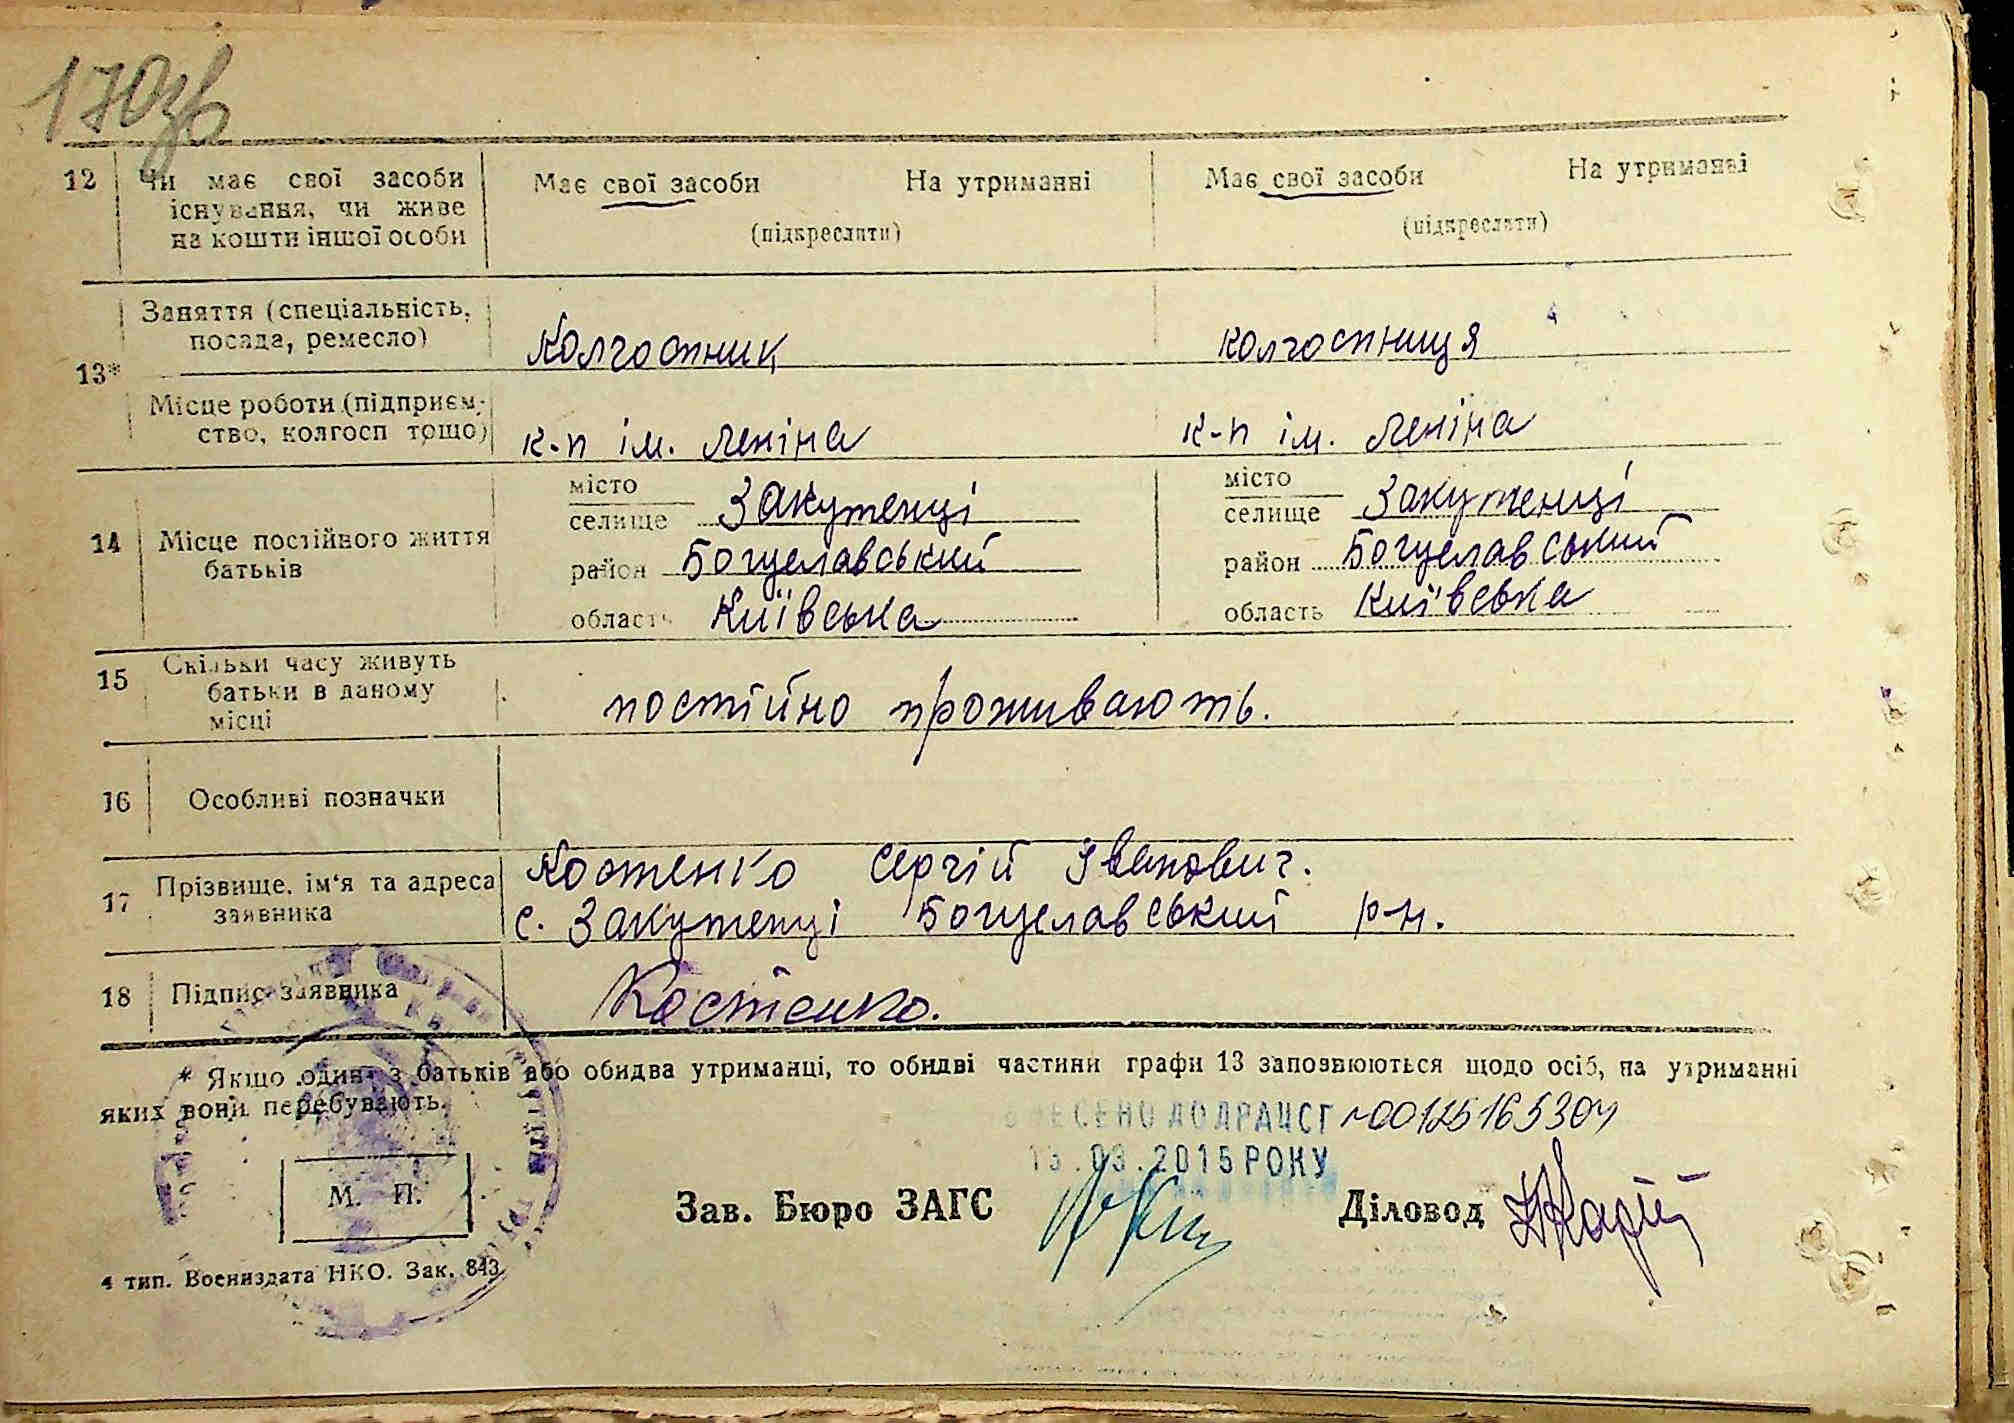 170зв
12 Чи має свої засоби існування, чи живе на кошти іншої особи
Має свої засоби На утриманні
(підкреслити)
Має свої засоби На утриманні
(підкреслити)
13*
Заняття (спеціальність, посада, ремесло)
Колгоспник
колгоспниця
Місце роботи (підприєм-
ство, колгосп тощо)
к-п ім. Леніна
к-п ім. Леніна
14 Місце постійного життя
батьків
місто
селище Закутенці
район Богуславський
область Київська
місто
селище Закутенці
район Богуславський
область Київська
15 Скільки часу живуть
батьки в даному
місці
постійно проживають.
16 Особливі позначки
17 Прізвище, ім‘я та адреса
заявника
Костенко Сергій Іванович.
с. Закутенці Богуславський р-н.
18 Підпис заявника
Костенко.
* Якщо один з батьків або обидва утриманці, то обидві частини графи 13 заповнюються щодо осіб, на утриманні
яких вони перебувають.
ВНЕСЕНО ДО ДРАЦСГ
13.03.2015 РОКУ
М. П.
Зав. Бюро ЗАГС
Діловод
4 тип. Воениздата НКО. Зак. 843